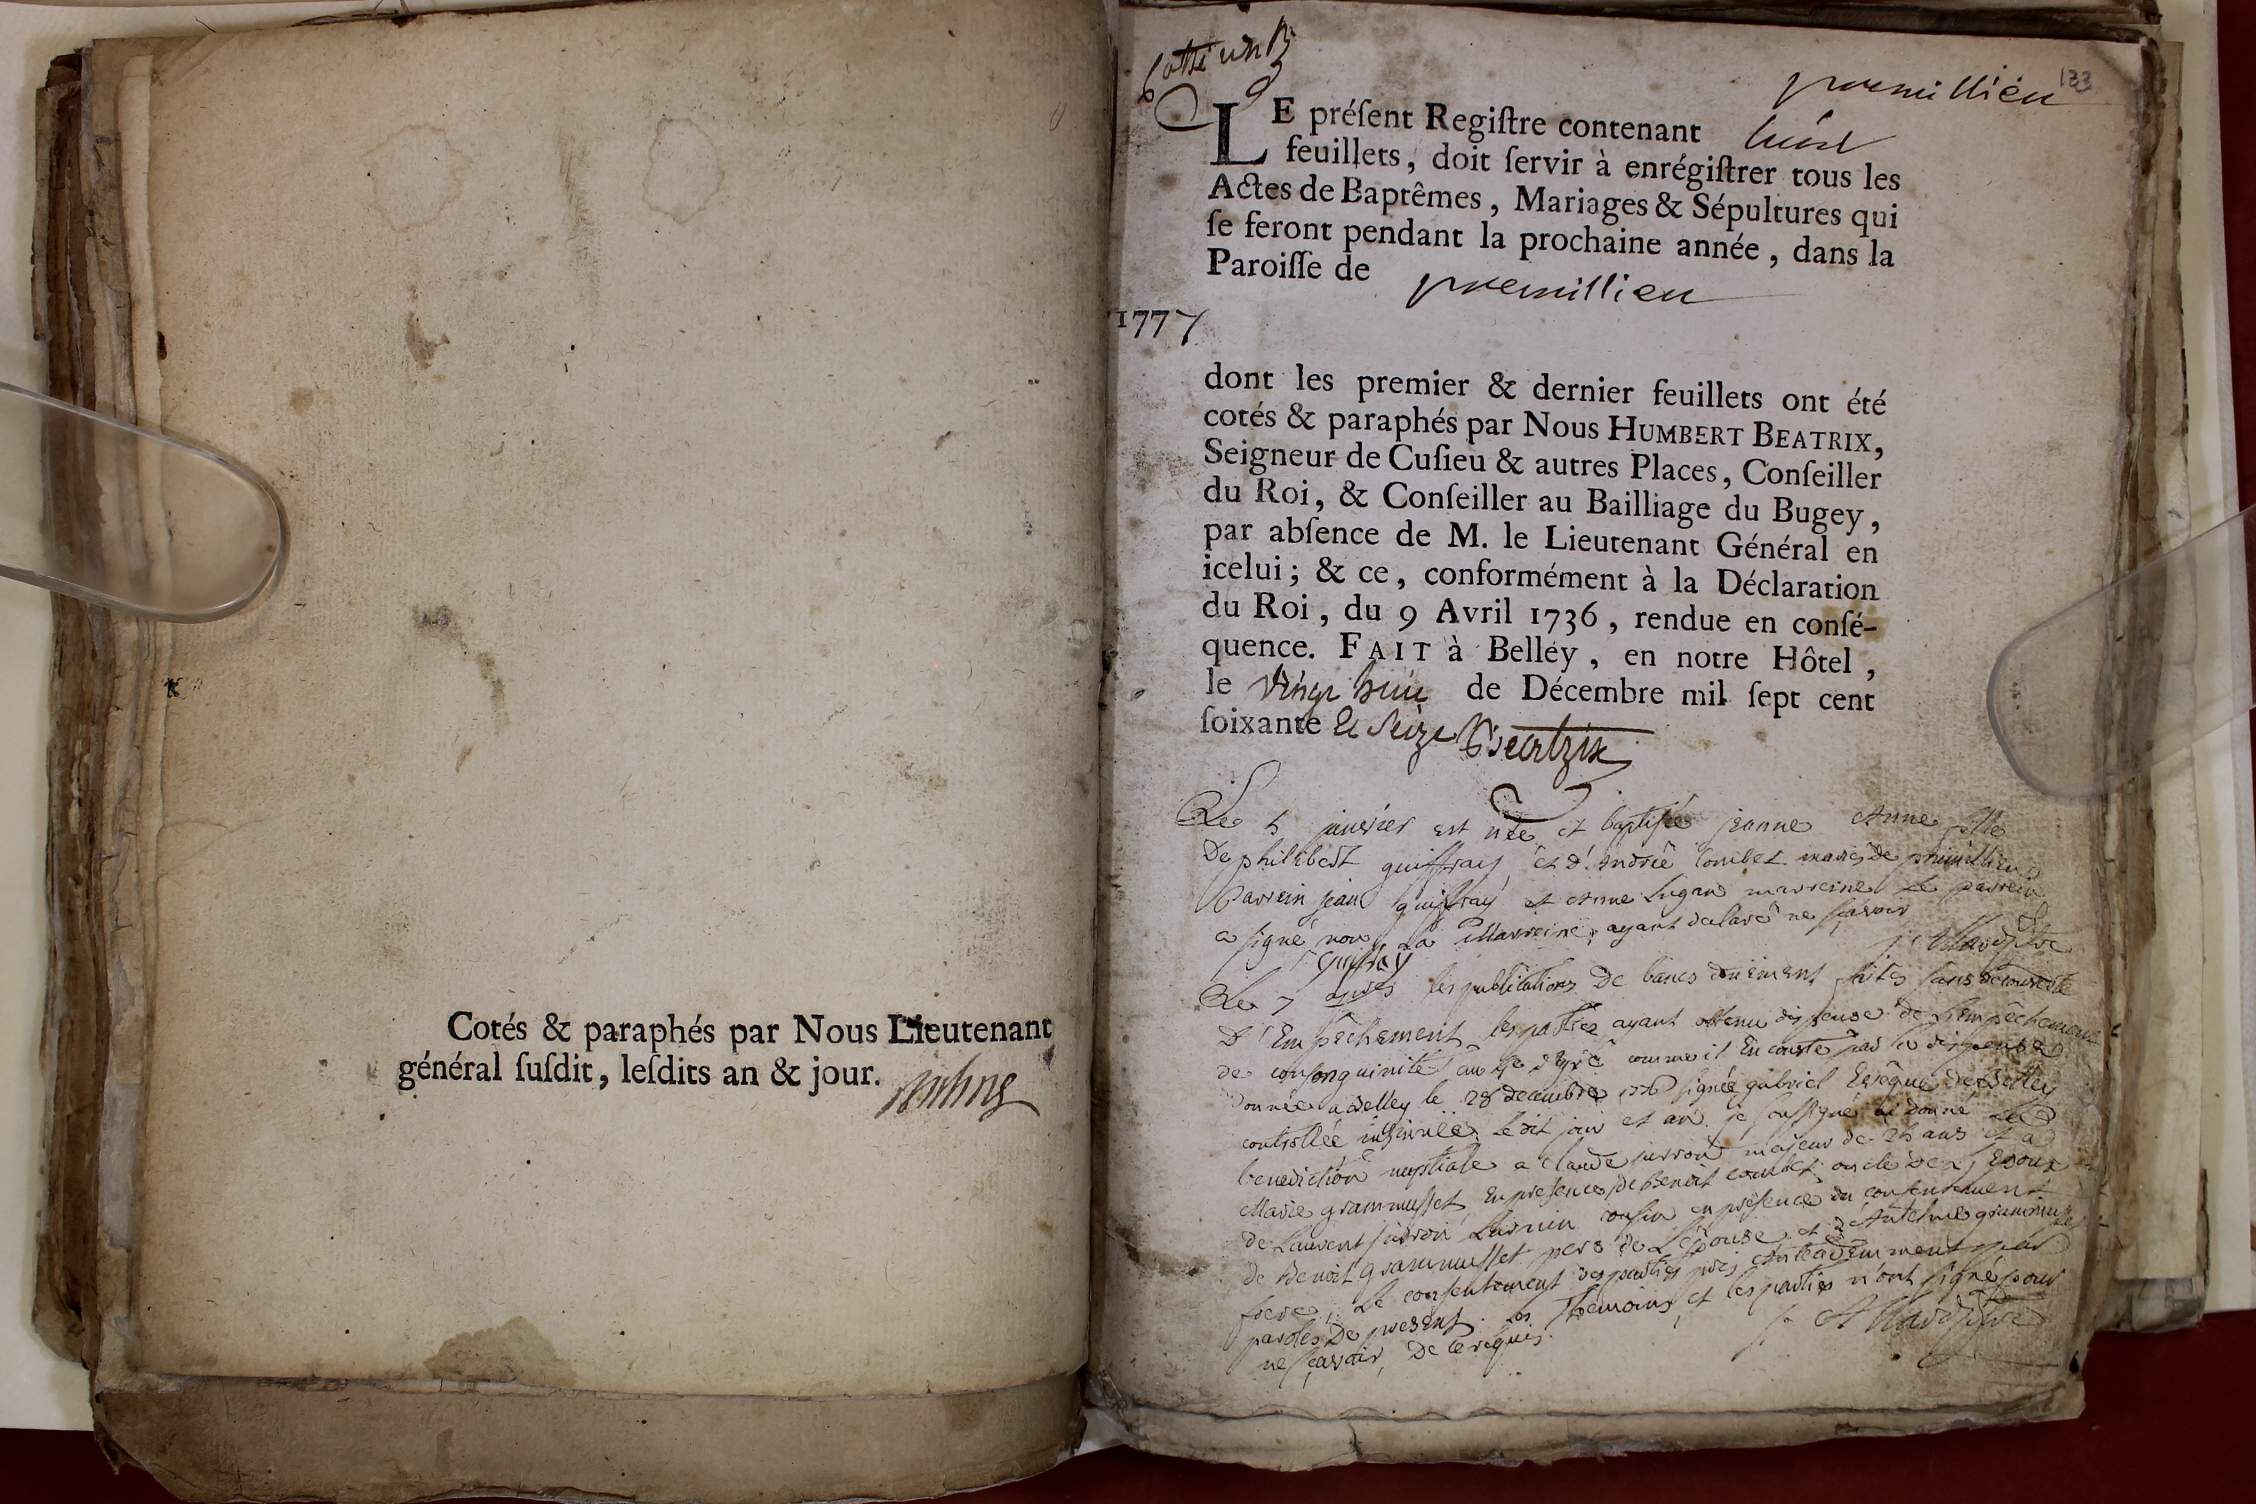 Cotés & paraphés par Nous Lieutenant
général suſdit, leſdits an & jour.
Cotté un
premillieu 133
LE préſent Regiſtre contenant huit
feuillets, doit ſervir à enrégiſtrer tous les
Actes de Baptêmes, Mariages & Sépultures qui
ſe feront pendant la prochaine année, dans la
Paroiſſe de premillieu
1777
dont les premier & dernier feuillets ont été
cotés & paraphés par Nous HUMBERT BEATRIX,
Seigneur de Cuſieu & autres Places, Conſeiller
du Roi, & Conſeiller au Bailliage du Bugey,
par abſence de M. le Lieutenant Général en
icelui; & ce, conformément à la Déclaration
du Roi, du 9 Avril 1736, rendue en conſé-
quence. FAIT à Belley, en notre Hôtel,
le vingt huit de Décembre mil ſept cent
ſoixante et seize Beatrix
Le 5 janvier est née et baptisée jeanne Anne fille
De philibert guiffray et d'Andrée Combet mariés de premillieu
Parrein jean guiffray et Anne Lugan marreine Le parrein
a signé non La Marreine, ayant declaré ne sçavoir
guifray
Le 7 après les publications De bancs duement faites sans decouverte
D'Empechement les parties ayant obtenu dispense de L'empêchement
de consanguinité au 4e degré comme il En conste par la dispense
Donnée a Belley le 28 decembre 1776 signée gabriel Evêque De Belley
controllée insinuée Le dit jour et an. je soussigné ai donné La
benediction nuptiale a claude jurron majeur de 25 ans et a
Marie grammusset En presence De Benoit Combet oncle De L'Epoux
de Laurent jurron cousin en présence du consentement
de Benoit grammusset pere de L'épouse et d'Antelme grammusset
frere, Le consentement des parties pris Antecedemment par
paroles De present. Les Themoins et les parties n'ont signé pour
ne sçavoir, De ce requis.